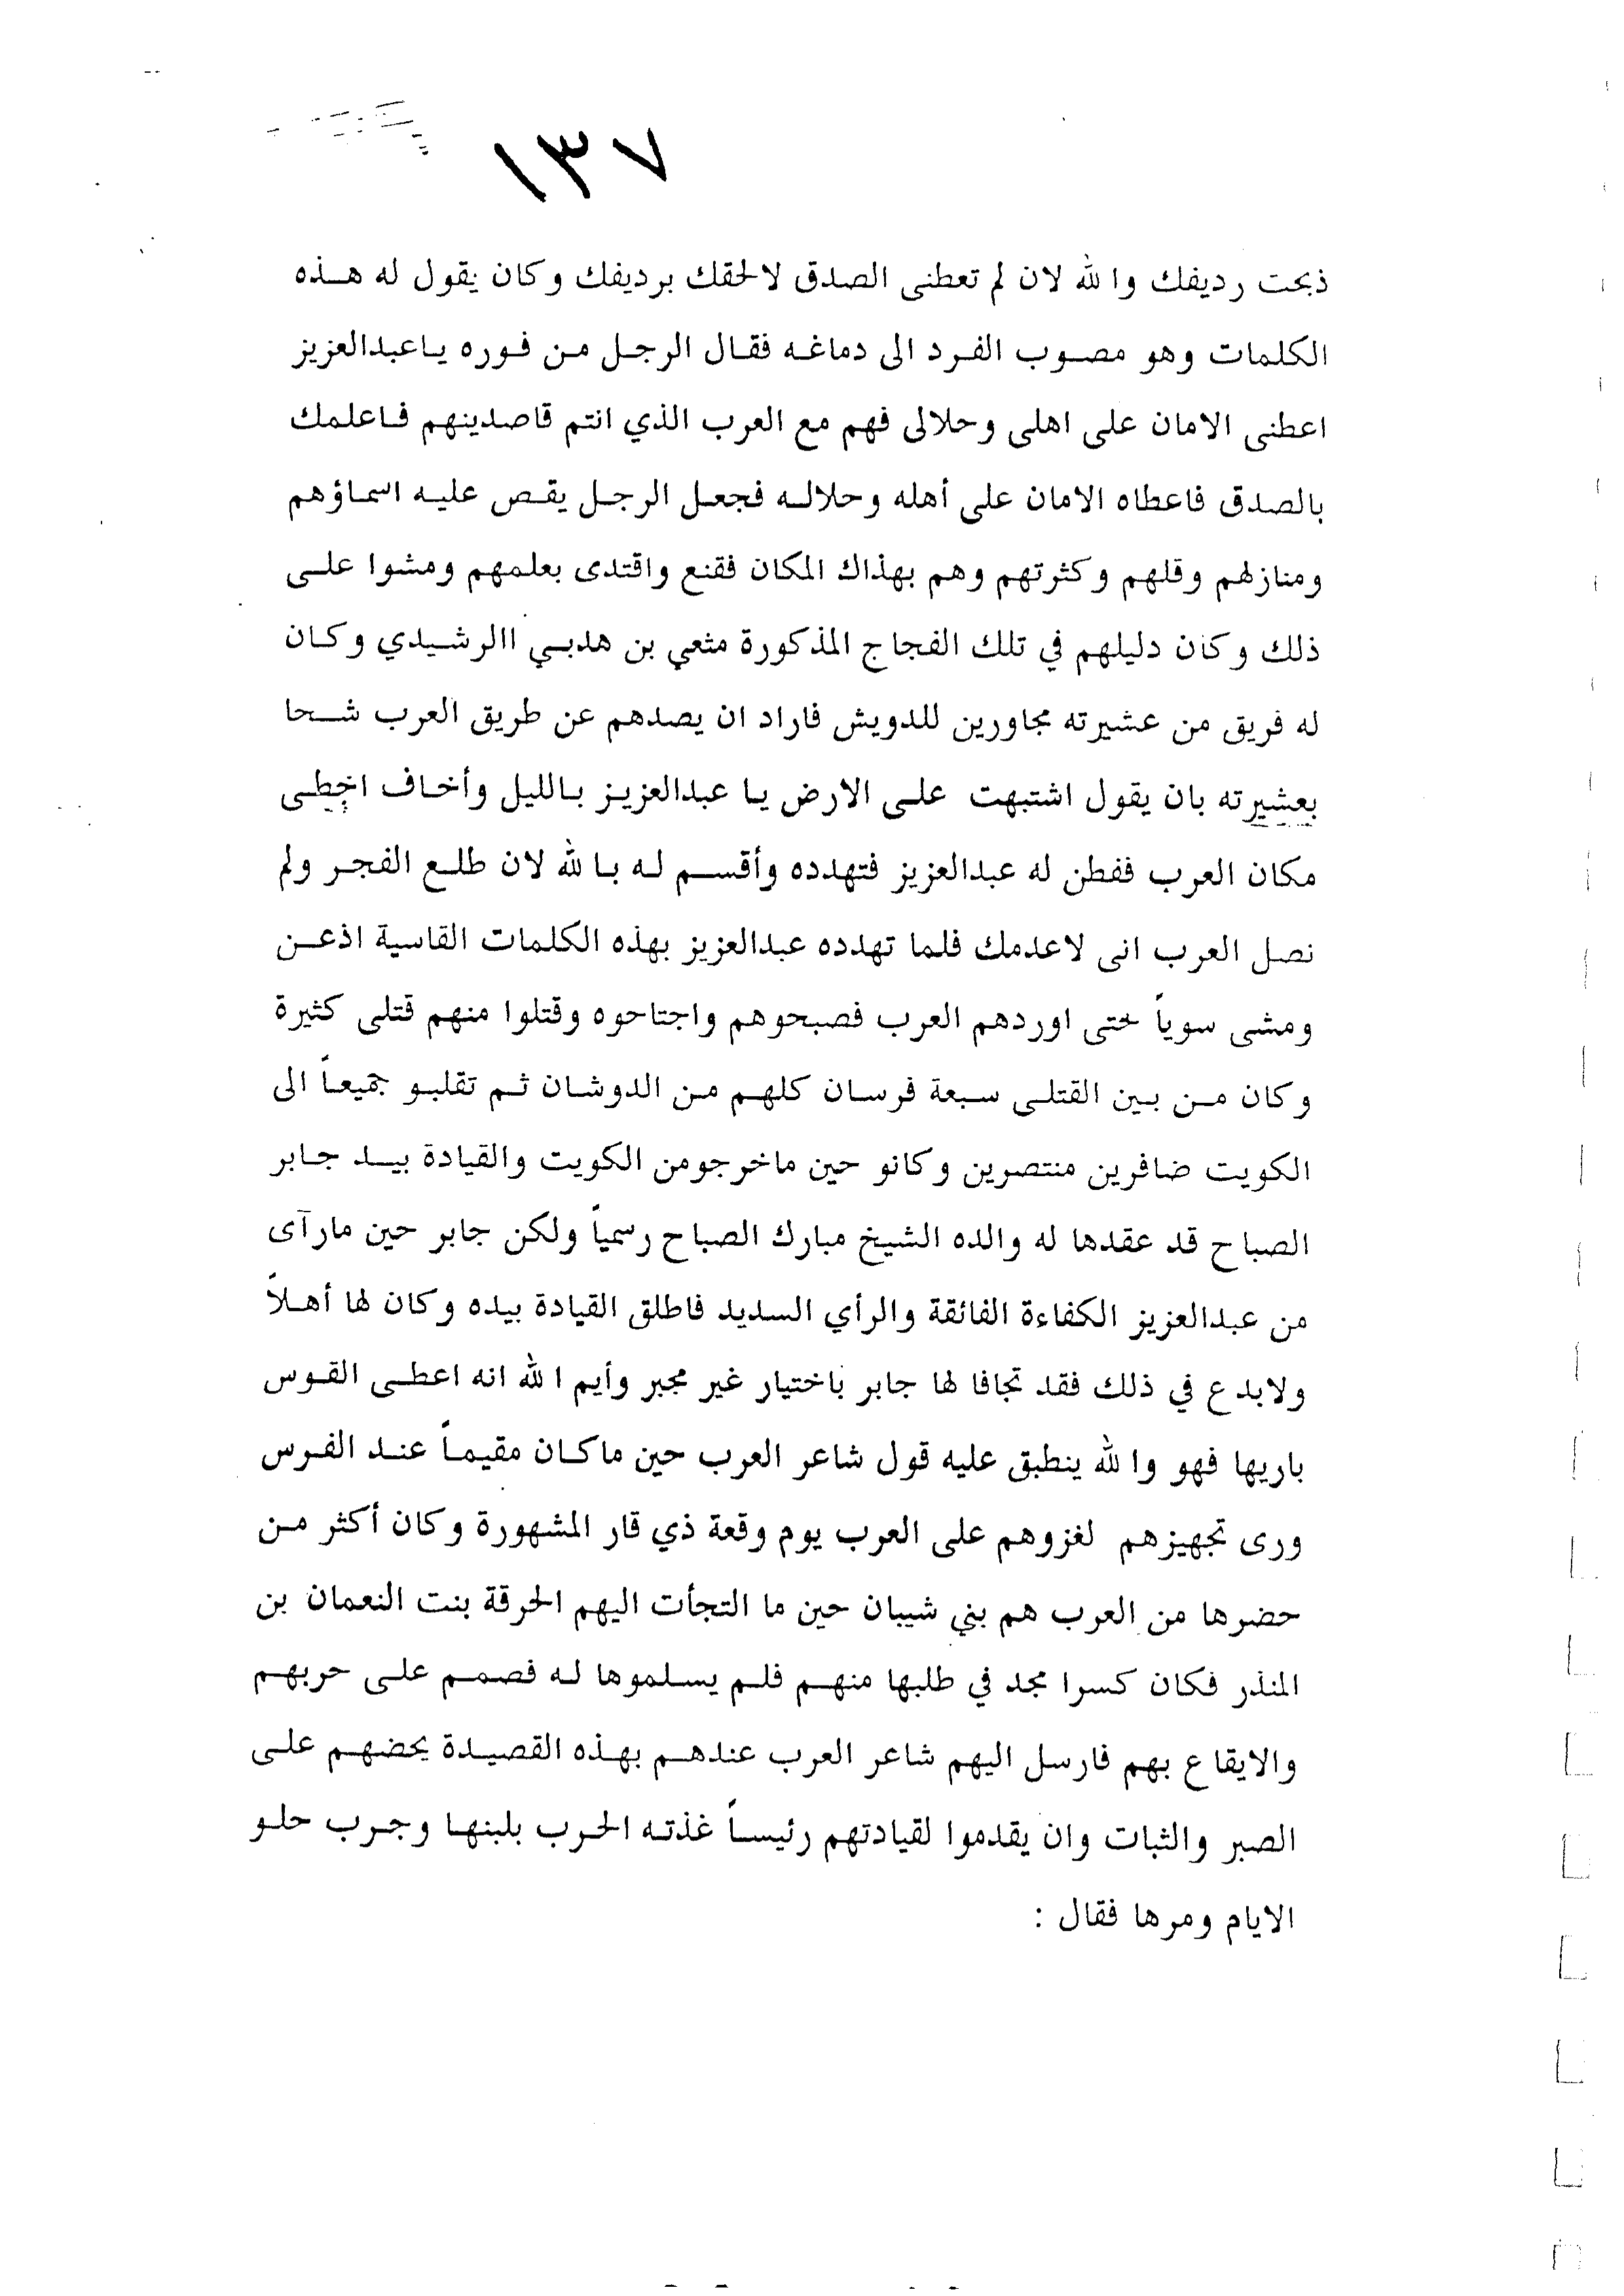 ١٣٧
ذبحت رديفك والله لان لم تعطنى الصدق لالحقك برديفك وكان يقول له هـذه
الكلمات وهو مصوب الفرد الى دماغه فقال الرجل من فوره ياعبدالعزيز
اعطنى الامان على اهلى وحلالى فهم مع العرب الذي انتم قاصدينهم فاعلمك
بالصدق فاعطاه الامان على أهله وحلاله فجعل الرجل يقص عليه اسماؤهم
ومنازلهم وقلهم وكثرتهم وهم بهذاك المكان فقنع واقتدى بعلمهم ومشوا على
ذلك وكان دليلهم في تلك الفجاج المذكورة مثعي بن هدبي االرشيدي وكان
له فريق من عشيرته مجاورين للدويش فاراد ان يصدهم عن طريق العرب شحا
بعشيرته بان يقول اشتبهت على الارض يا عبدالعزيز بالليل وأخاف اخطى
مكان العرب ففطن له عبدالعزيز فتهدده وأقسم له بالله لان طلع الفجر ولم
نصل العرب انى لاعدمك فلما تهدده عبدالعزيز بهذه الكلمات القاسية اذعن
ومشى سوياً حتى اوردهم العرب فصبحوهم واجتاحوه وقتلوا منهم قتلى كثيرة
وكان من بين القتلى سبعة فرسان كلهم من الدوشان ثم تقلبو جميعاً الى
الكويت ضافرين منتصرين وكانو حين ماخرجومن الكويت والقيادة بيد جابر
الصباح قد عقدها له والده الشيخ مبارك الصباح رسمياً ولكن جابر حين مارآى
من عبدالعزيز الكفاءة الفائقة والرأي السديد فاطلق القيادة بيده وكان لها أهلاً
ولابدع في ذلك فقد تجافا لها جابر باختيار غير مجبر وأيم الله انه اعطى القوس
باريها فهو والله ينطبق عليه قول شاعر العرب حين ماكان مقيماً عند الفرس
ورى تجهيزهم لغزوهم على العرب يوم وقعة ذي قار المشهورة وكان أكثر من
حضرها من العرب هم بني شيبان حين ما التجأت اليهم الحرقة بنت النعمان بن
المنذر فكان كسرا مجد في طلبها منهم فلم يسلموها له فصمم على حربهم
والايقاع بهم فارسل اليهم شاعر العرب عندهم بهذه القصيدة يحضهم على
الصبر والثبات وان يقدموا لقيادتهم رئيساً غذته الحرب بلبنها وجرب حلو
الايام ومرها فقال :